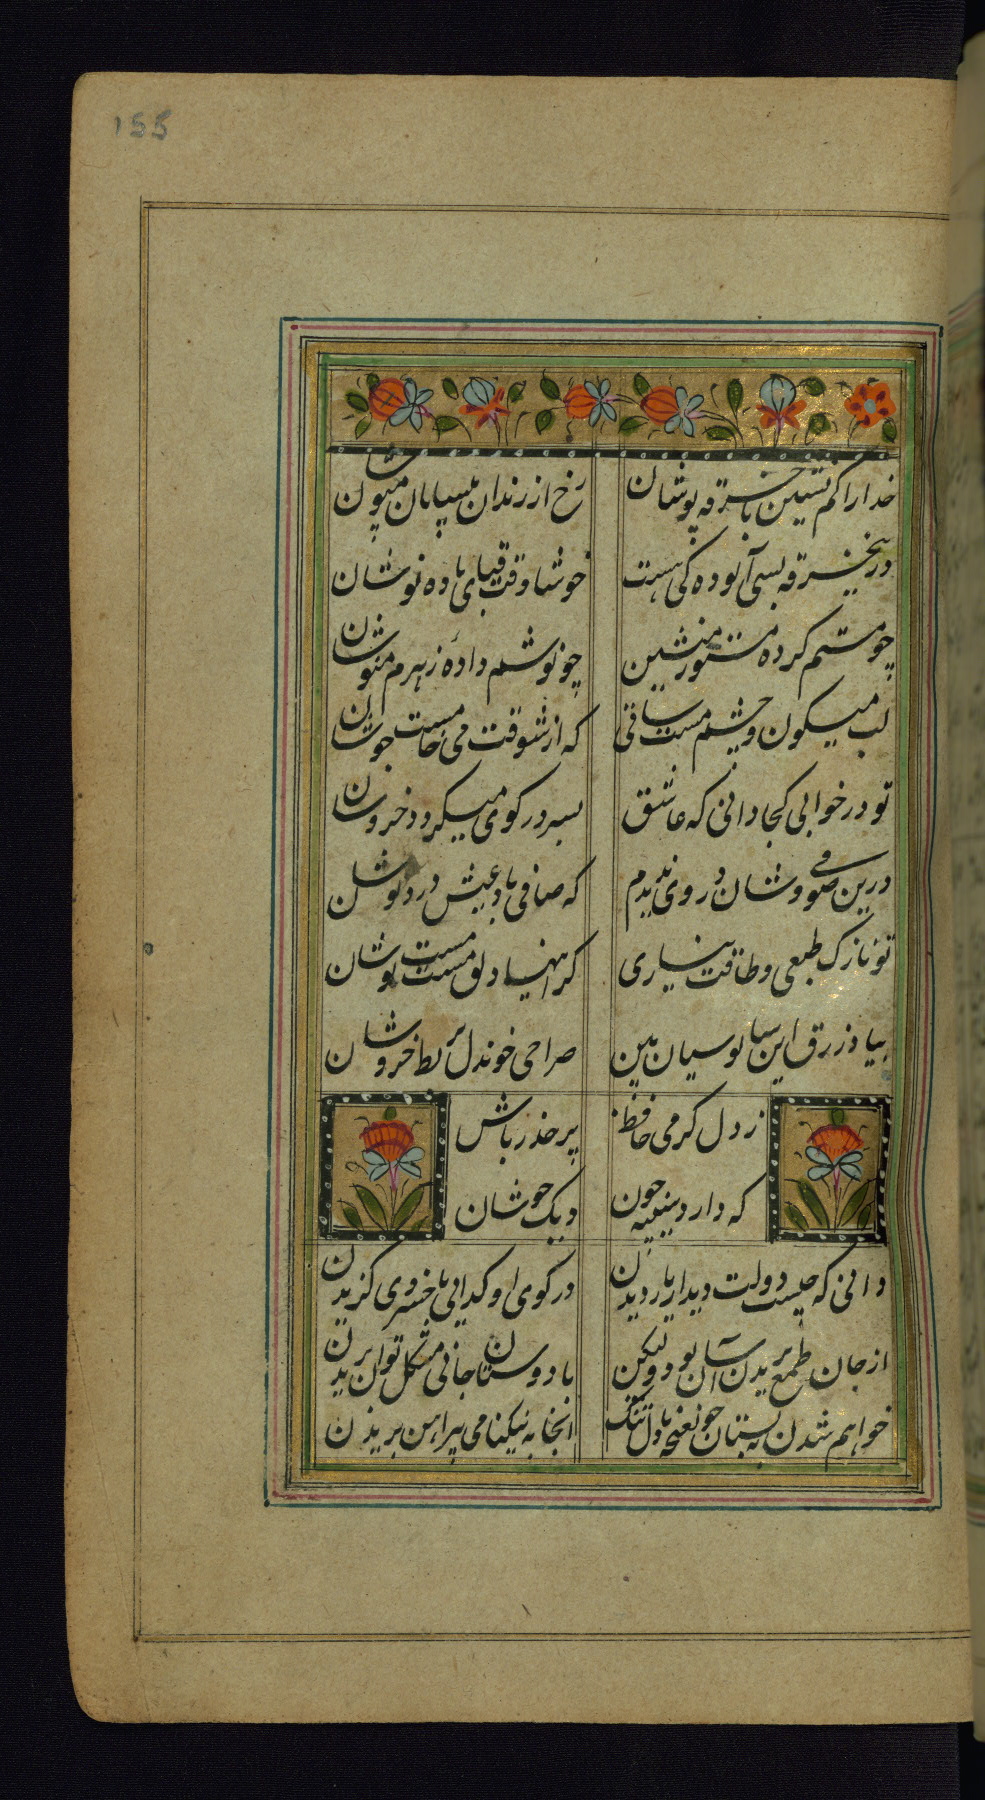 155
خدارا کم نشین با خرقه پوشان
رخ از رندان بیسامان مپوشان
درین خرقه بسی آلوده کی هست
خوشا وقت قبای باده نوشان
چو مستم کرده مستور منشین
چو نوشم داده زهرم منوشان
لب میکون و چشم مست ساقی
که از شوقت می خامست جوشان
تو در خوابی کجا دانی که عاشق
بسر در کوی میکردد خروشان
درین صوفی وشان دردی ندیدم
که صافی باد عیش دردنوشان
تو نازک طبعی و طاقت نیاری
کرانیهای دلق پوشان
بیا وز زرق این سالوسیان بین
صراحی خوندل بربط خروشان
ز دل کرمی حافظ
بر حذر باش
که دارد سینه چون
دیک جوشان
دانی که چیست دولت دیدار یار دیدن
در کوی او کدایی بر خسروی کزیدن
از جان طمع بریدن آسان بود ولیکن
با دوستان جانی مشکل توان بریدن
خواهم شدن به بستان چون غنچه با دل تنک
انجا به نیکنامی پیراهن بریدن